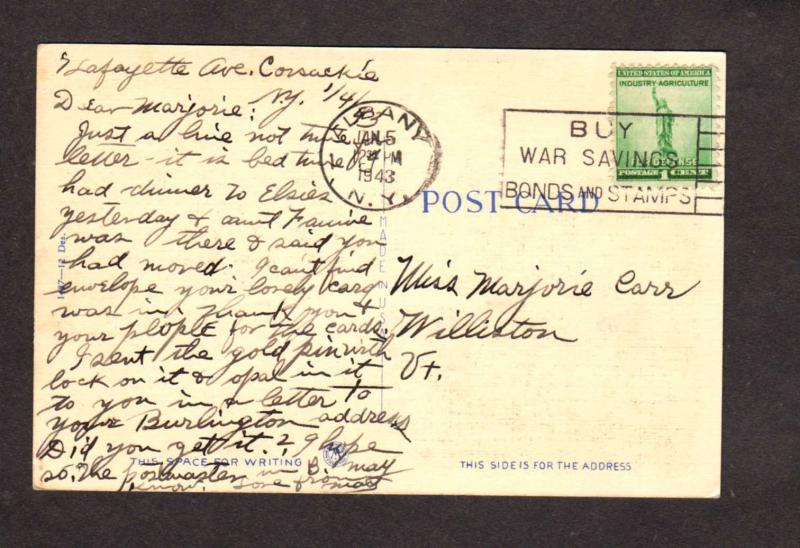 Lafayette Ave. Coxsackie
N.Y. 1/4/
Dear Marjorie:
Just a line not time for
letter - it is bed time. I
had dinner to Elsies
yesterday & aunt Fannie
was there & said you
had moved. I can't find
envelope your lovely card
was in. Thank you &
your people for the cards.
I sent the gold pin with
lock on it & opal in it
to you in a letter to
your Burlington address
Did you get it? I hope
so. The postmaster in B. may
know. Love from
THIS SPACE FOR WRITING
MADE IN U.S.A.
ALBANY
N.Y.
JAN 5
PM
1943
BUY
WAR SAVINGS
BONDS AND STAMPS
UNITED STATES OF AMERICA
INDUSTRY-AGRICULTURE
FOR DEFENSE
POSTAGE 1 CENT
POST CARD
Miss Marjorie Carr
Williston
Vt.
THIS SIDE IS FOR THE ADDRESS